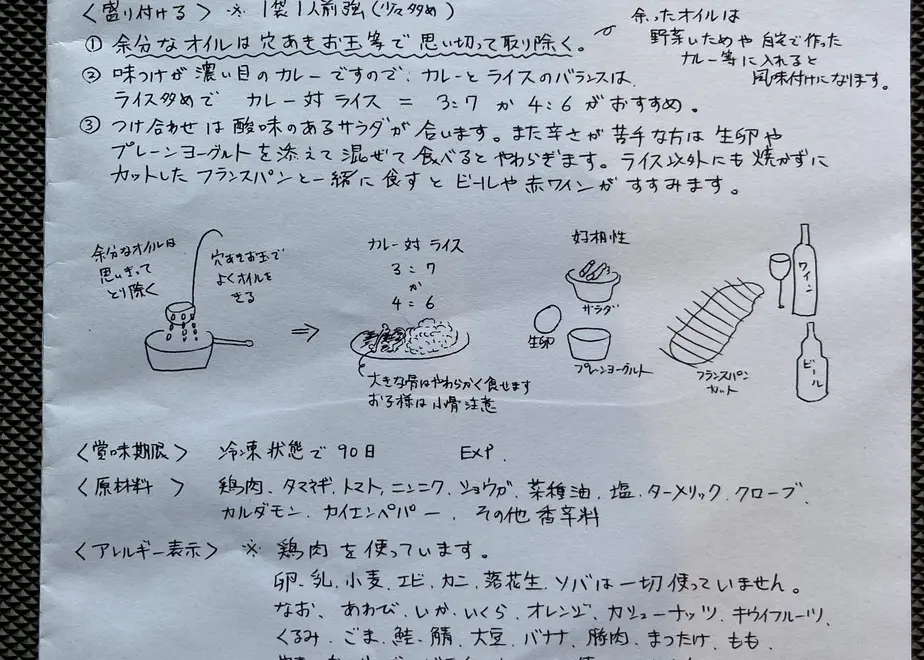 〈盛り付ける〉 ※ 1袋1人前強(少々多め)
① 余分なオイルは穴あきお玉等で思い切って取り除く。
余ったオイルは
野菜いためや自宅で作った
カレー等に入れると
風味付けになります。
② 味つけが濃い目のカレーですので、カレーとライスのバランスは
ライス多めで カレー対ライス = 3:7 か 4:6 がおすすめ。
③ つけ合わせは酸味のあるサラダが合います。また辛さが苦手な方は生卵や
プレーンヨーグルトを添えて混ぜて食べるとやわらぎます。ライス以外にも焼かずに
カットしたフランスパンと一緒に食すとビールや赤ワインがすすみます。
余分なオイルは
思いきって
とり除く
穴あきお玉で
よくオイルを
きる
⇒
カレー対ライス
3:7
か
4:6
大きな骨はやわらかく食せます
お子様は小骨注意
好相性
サラダ
生卵
プレーンヨーグルト
フランスパン
カット
ワイン
ビール
〈賞味期限〉 冷凍状態で90日 EXP.
〈原材料〉 鶏肉、タマネギ、トマト、ニンニク、ショウガ、菜種油、塩、ターメリック、クローブ、
カルダモン、カイエンペパー、その他香辛料
〈アレルギー表示〉 ※ 鶏肉を使っています。
卵、乳、小麦、エビ、カニ、落花生、ソバは一切使っていません。
なお、あわび、いか、いくら、オレンジ、カシューナッツ、キウイフルーツ、
くるみ、ごま、鮭、鯖、大豆、バナナ、豚肉、まつたけ、もも